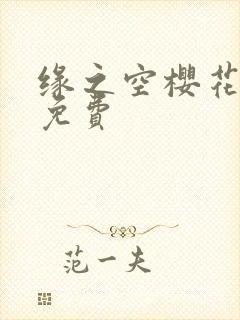 缘之空樱花
免費
范一夫